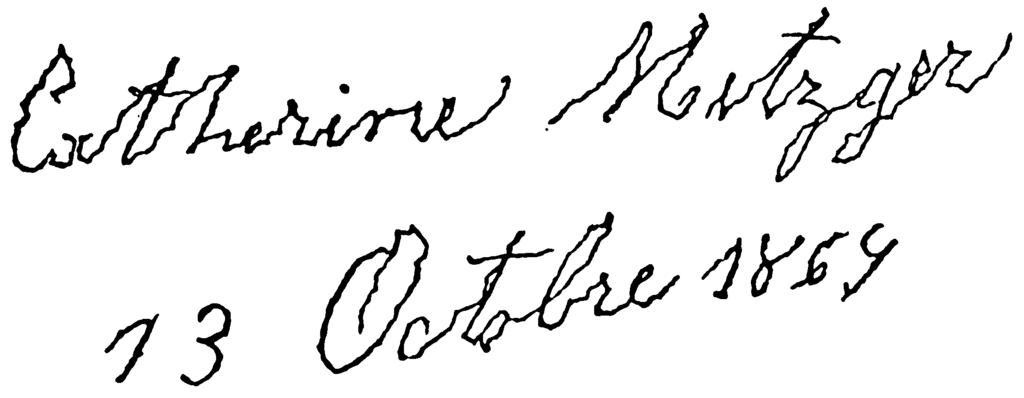 Catherine Metzger
13 Octbre 1869